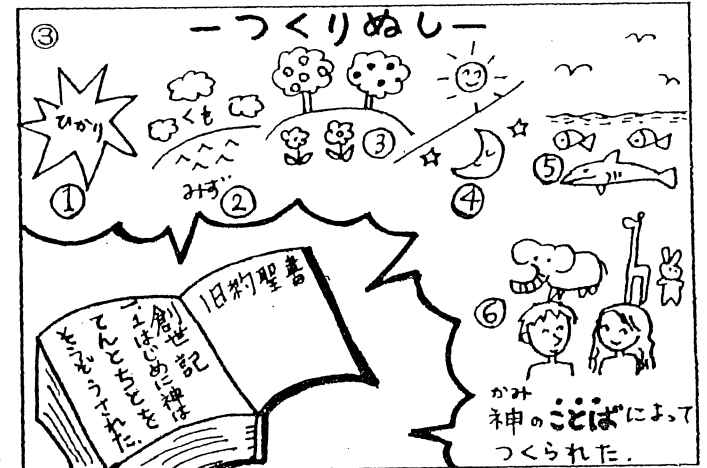 ③
ーつくりぬしー
ひかり
①
くも
みず
②
③
④
⑤
⑥
旧約聖書
創世記
「1はじめに神は
てんとちとを
そうぞうされた.
かみ
神のことばによって
つくられた.